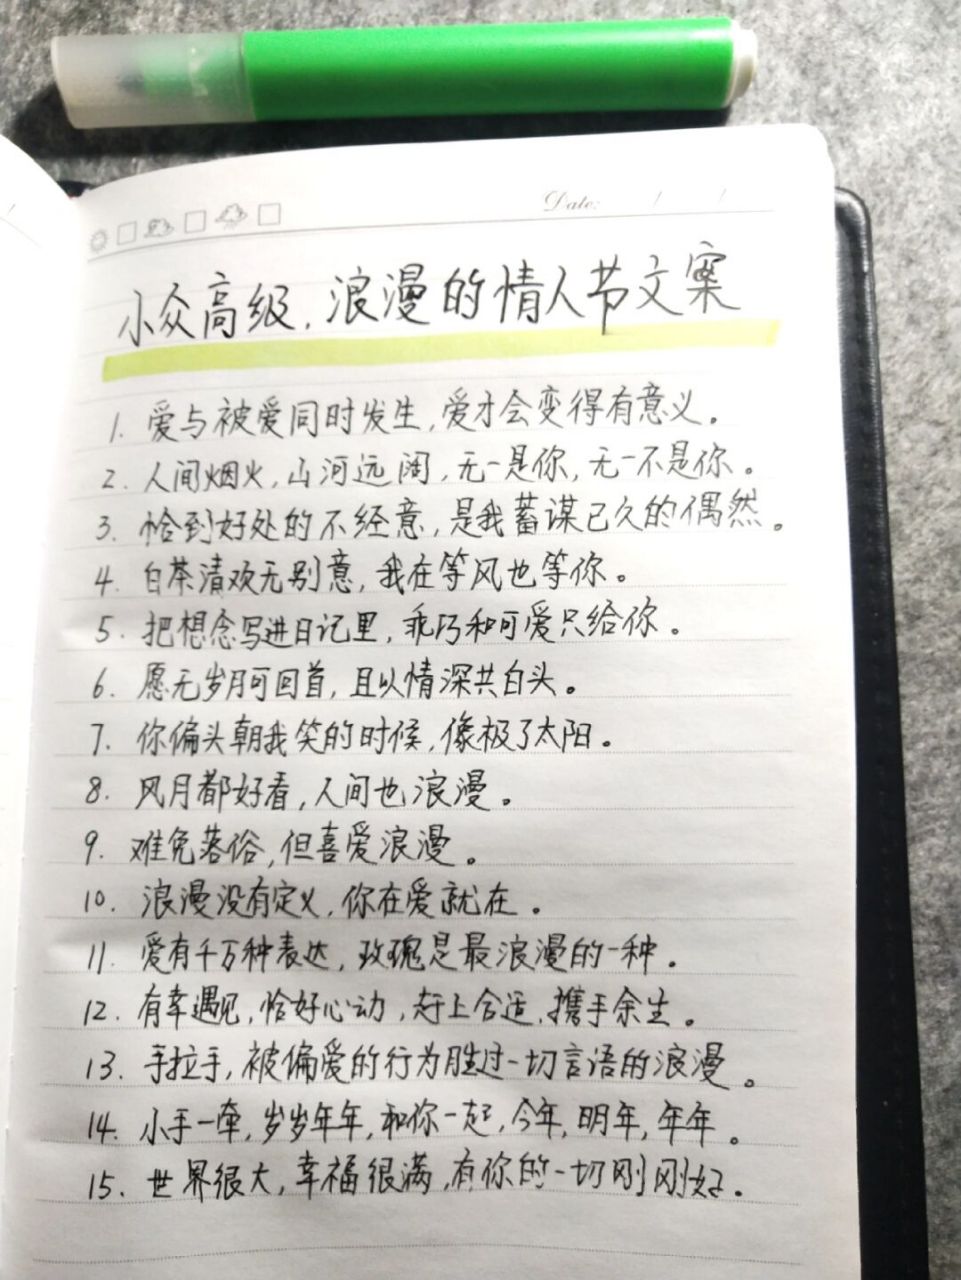 Date: / /
小众高级，浪漫的情人节文案
1. 爱与被爱同时发生，爱才会变得有意义。
2. 人间烟火，山河远阔，无一是你，无一不是你。
3. 恰到好处的不经意，是我蓄谋已久的偶然。
4. 白茶清欢无别意，我在等风也等你。
5. 把想念写进日记里，乖巧和可爱只给你。
6. 愿无岁月可回首，且以情深共白头。
7. 你偏头朝我笑的时候，像极了太阳。
8. 风月都好看，人间也浪漫。
9. 难免落俗，但喜爱浪漫。
10. 浪漫没有定义，你在爱就在。
11. 爱有千万种表达，玫瑰是最浪漫的一种。
12. 有幸遇见，恰好心动，赶上合适，携手余生。
13. 手拉手，被偏爱的行为胜过一切言语的浪漫。
14. 小手一牵，岁岁年年，和你一起，今年，明年，年年。
15. 世界很大，幸福很满，有你的一切刚刚好。